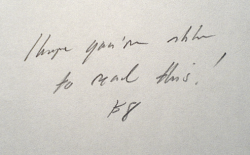 I hope you're able
to read this!
K8